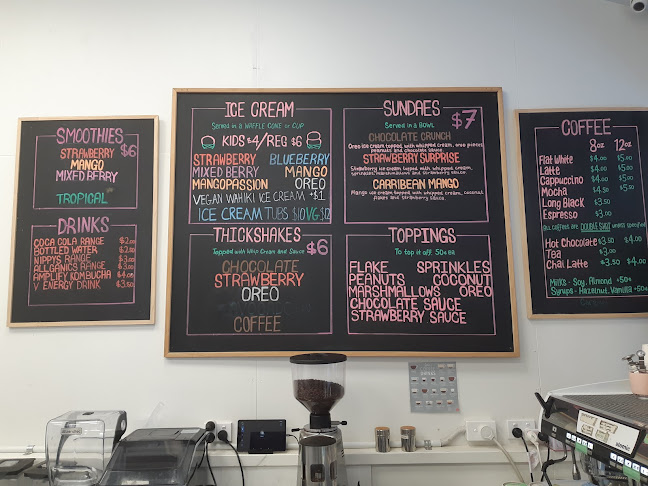 SMOOTHIES
$6
STRAWBERRY
MANGO
MIXED BERRY
TROPICAL
DRINKS
COCA COLA RANGE $2.00
BOTTLED WATER $2.50
NIPPYS RANGE $3.00
ALLGANICS RANGE $3.00
AMPLIFY KOMBUCHA $4.00
V ENERGY DRINK $3.50
ICE CREAM
Served in a WAFFLE CONE or CUP
KIDS $4/REG $6
STRAWBERRY BLUEBERRY
MIXED BERRY MANGO
MANGOPASSION OREO
VEGAN WAHIKI ICE CREAM +$1
ICE CREAM TUBS $10 VG $12
THICKSHAKES
Topped with Whip Cream And Sauce $6
CHOCOLATE
STRAWBERRY
OREO
COFFEE
SUNDAES
Served in a Bowl $7
CHOCOLATE CRUNCH
Oreo ice cream topped with whipped cream, oreo pieces,
peanuts and chocolate sauce
STRAWBERRY SURPRISE
Strawberry ice cream topped with whipped cream,
sprinkles, marshmallows and strawberry sauce.
CARIBEAN MANGO
Mango ice cream topped with whipped cream, coconut
flakes and strawberry sauce.
TOPPINGS
To top it off! 50¢ EA
FLAKE SPRINKLES
PEANUTS COCONUT
MARSHMALLOWS OREO
CHOCOLATE SAUCE
STRAWBERRY SAUCE
COFFEE
8oz 12oz
Flat White $4.00 $5.00
Latte $4.00 $5.00
Cappuccino $4.00 $5.00
Mocha $4.50 $5.50
Long Black $3.50
Espresso $3.00
All coffees are DOUBLE SHOT unless specified
Hot Chocolate $3.50 $4.00
Tea $3.00
Chai Latte $3.50 $4.00
Milks - Soy, Almond +50¢
Syrups - Hazelnut, Vanilla +50¢